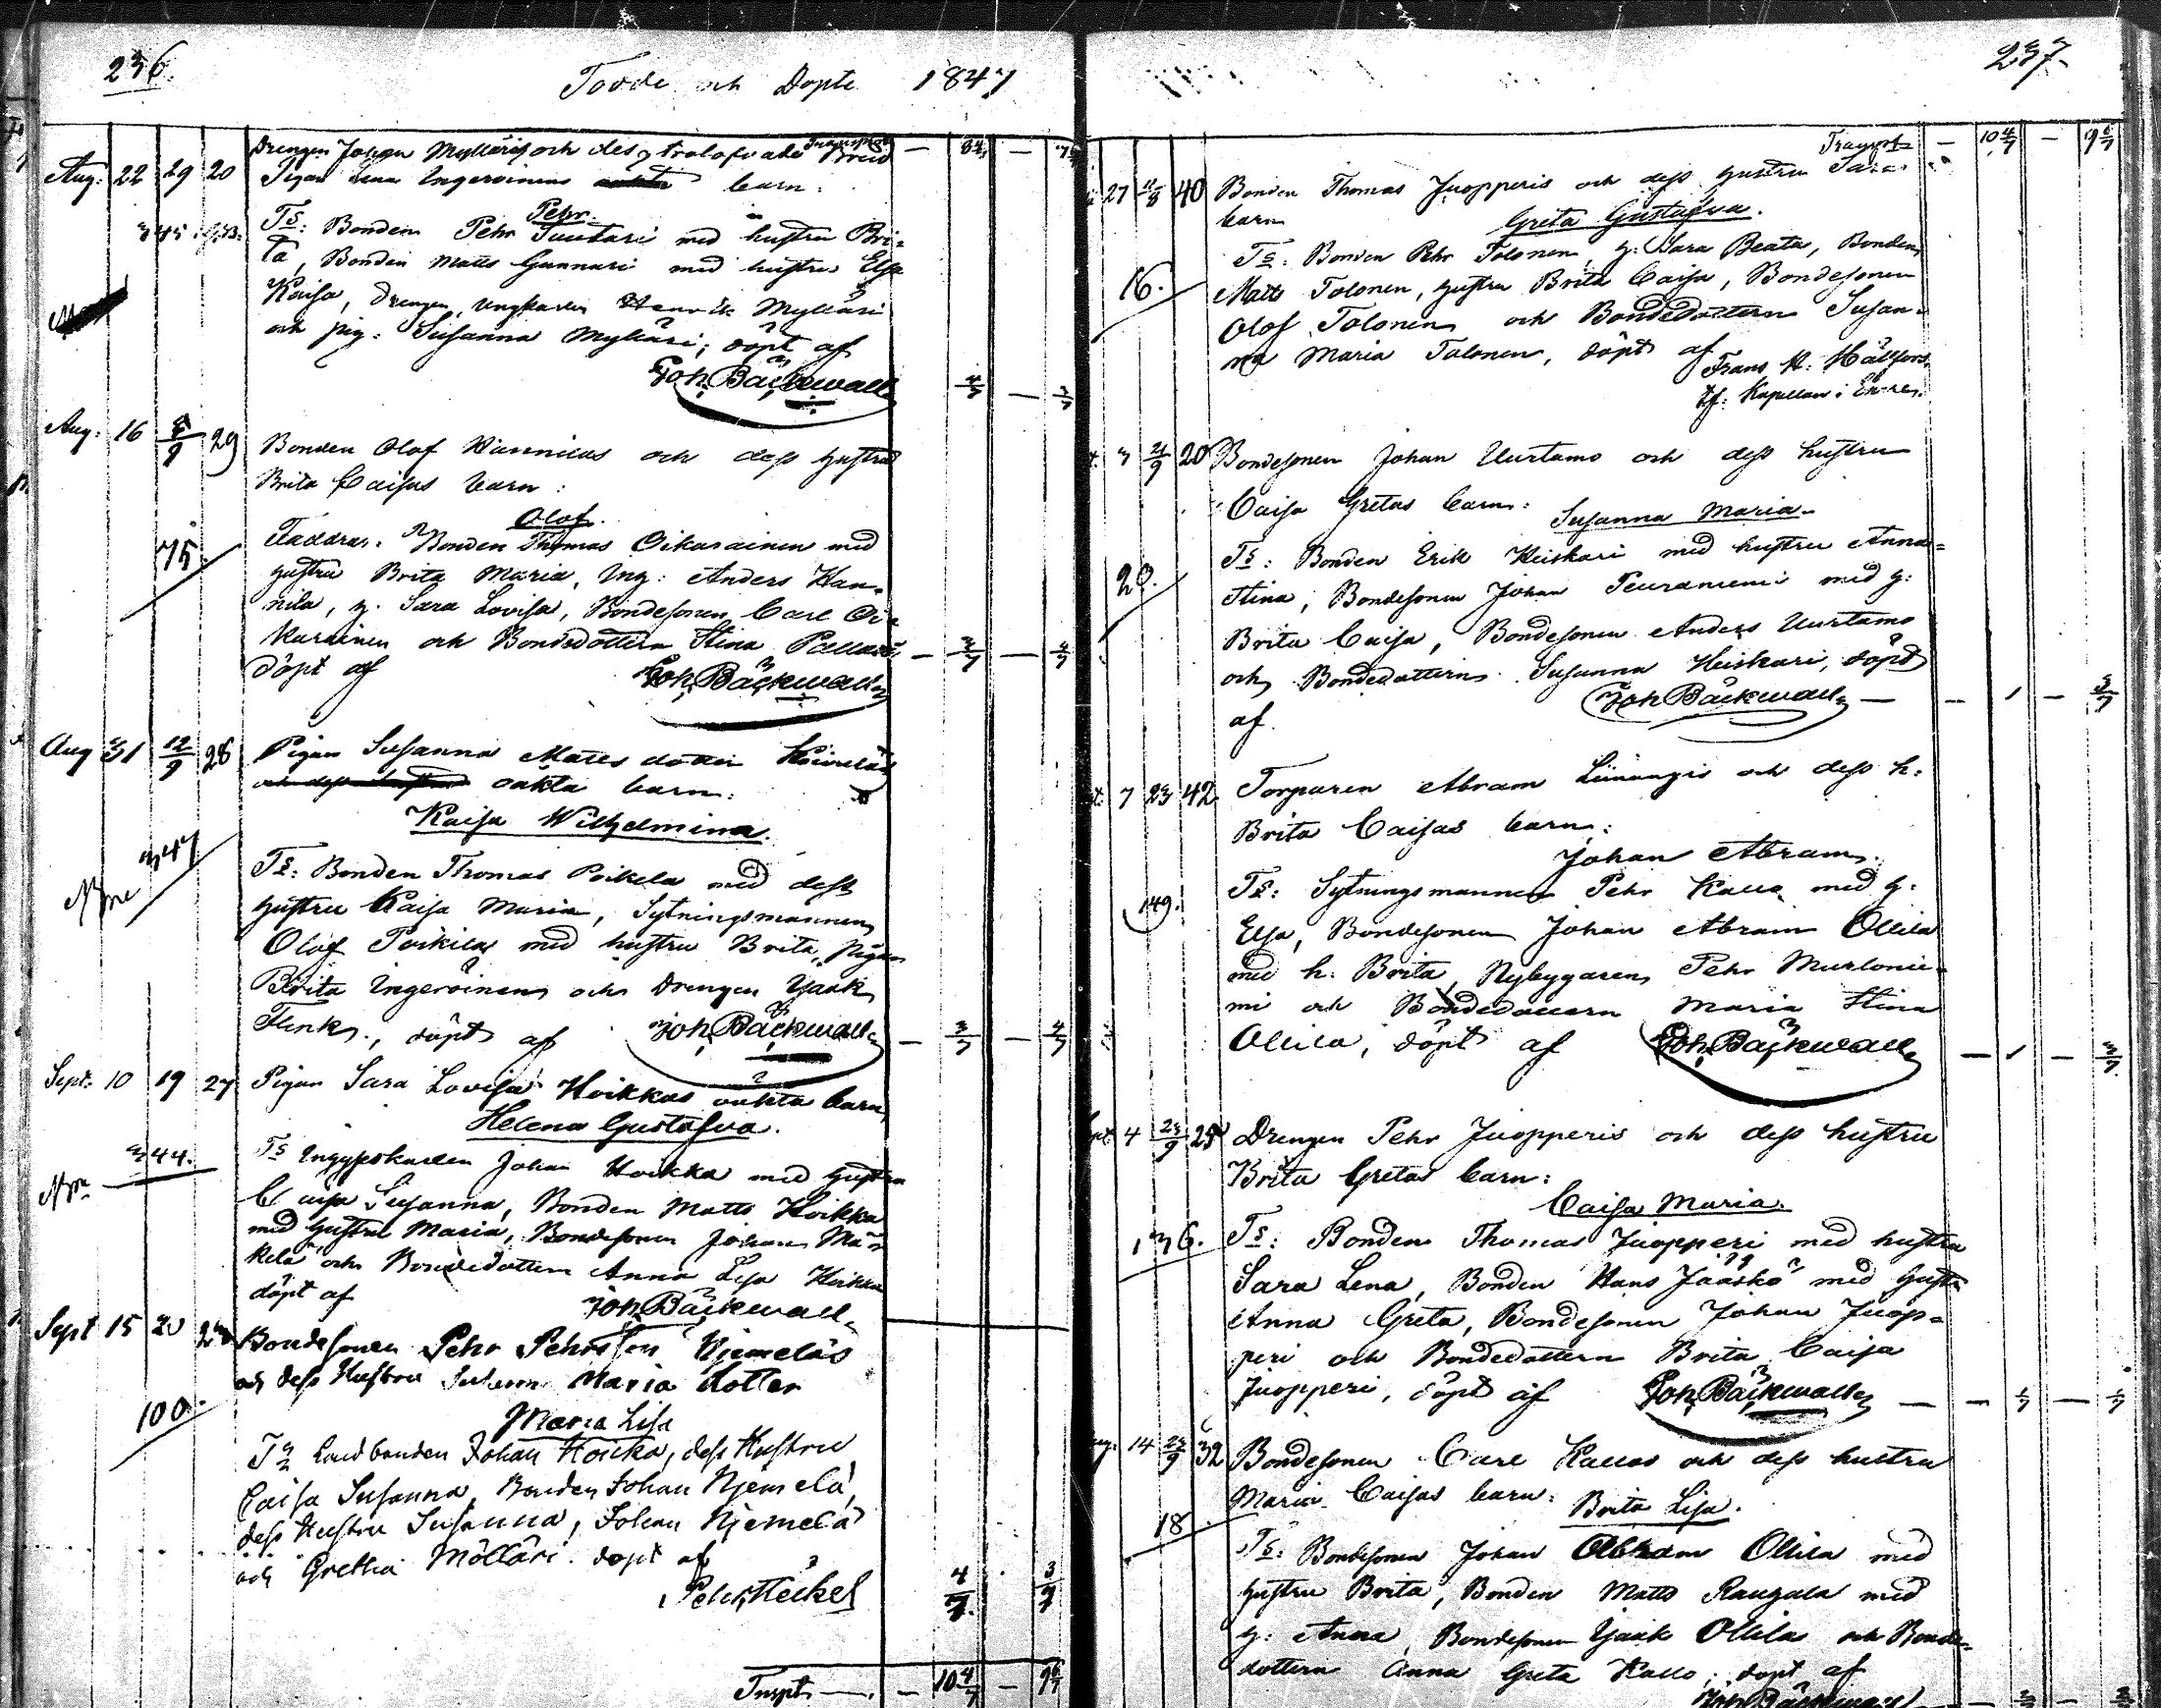 236.
Födde och Döpte 1847
Transport
Drengen Johan Mylläris och dess trolofvade Brud — 8 — 7
Aug. 22 29 20 Pigan Lena Ingeroinens barn:
Pehr.
345 Ts: Bonden Pehr Suutari med hustru Bri-
ta, Bonden Matts Gunnari med hustru Elsa
Kaisa, Drengen, ungkarlen Henrik Mylläri
och pig: Susanna Mylläri; döpt af
Joh. Bäckwall 4/7 — 3/7
Aug. 16 5/9 29 Bonden Olof Kannilas och dess hustru
Brita Caisas barn:
Olof.
75. Faddrar: Bonden Thomas Oikarainen med
hustru Brita Maria, Ung: Anders Kan-
nila, h. Sara Lovisa, Bondesonen Carl Oi-
karainen och Bondedottern Stina
döpt af Joh. Bäckwall — 3/7 — 4/7
Aug 31 12/9 28 Pigan Susanna Matts dotter
oäkta barn:
Kaisa Wilhelmina.
347 Ts: Bonden Thomas Poikela med dess
hustru Kaisa Maria, Sytningsmannen
Olof Poikilas med hustru Brita, pigan
Brita Ingeroinen och Drengen Isaak
Flink, döpt af Joh. Bäckwall — 3/7 — 4/7
Sept: 10 19 27 Pigan Sara Lovisa Hoikkas oäkta barn
Helena Gustafva.
344. Ts Ungkarlen Johan Hoikka med hustru
Caisa Susanna, Bonden Matts Hoikka
med hustru Maria, Bondesonen Johan Mä-
kelä och Bondedottern Anna Lisa Hoikka
döpt af Joh. Bäckwall
Sept 15 20 Bondesonen Pehr Pehrsson Njemeläs
och dess Hustru Maria dotter
Maria Lisa
100. Ts Landbonden Johan Hoicka, dess Hustru
Caisa Susanna, Bonden Johan Njemelä,
dess Hustru Susanna, Johan Njemelä
och Gretha Mölläri. döpt af
Petr. Heickel 4/7 3/7
Trspt — 10 4/7 — 9 6/7
237.
Transpt — 10 4/7 — 9 6/7
27 11/8 40 Bonden Thomas Juopperis och dess hustru
barn Greta Gustafva.
Ts: Bonden Pehr Tolonen, h: Sara Beata, Bonden
16. Matts Tolonen, hustru Brita Caisa, Bondesonen
Olof Tolonen och Bondedottern Susan-
na Maria Tolonen, döpt af
Frans M: Hällfors
tf: Kapellan i
3 21/9 20 Bondesonen Johan Uurtamo och dess hustru
Caisa Gretas barn: Susanna Maria
Ts: Bonden Erik Keiskari med hustru Anna
20. Stina, Bondesonen Johan Peuraniemi med h:
Brita Caisa, Bondesonen Anders Uurtamo
och Bondedottern Susanna Keiskari, döpt
af. Joh Bäckwall — — 1 — 3/7
7 23 42 Torparen Abram Liinangis och dess h:
Brita Caisas barn:
Johan Abram.
149. Ts: Sytningsmannen Pehr Kallo med h:
Elsa, Bondesonen Johan Abram Ollila
med h: Brita, Nybyggaren Pehr Murtonie-
mi och Bondedottern Maria Stina
Ollila, döpt af Joh. Bäckwall — 1 — 3/7
4 23/9 25 Drengen Pehr Juopperis och dess hustru
Brita Gretas barn:
Caisa Maria.
136. Ts: Bonden Thomas Juopperi med hustru
Sara Lena, Bonden Hans Jääskö med hustru
Anna Greta, Bondesonen Johan Juop-
peri och Bondedottern Brita Caisa
Juopperi, döpt af Joh. Bäckwall
14 25/9 32 Bondesonen Carl Kallos och dess hustru
Maria Caisas barn: Brita Lisa.
18 Ts: Bondesonen Johan Abram Ollila med
hustru Brita, Bonden Matts Raugala med
h: Anna, Bondesonen Isaak Ollilas och Bonde-
dottern Anna Greta Kallo; döpt af
Joh Bäckwall